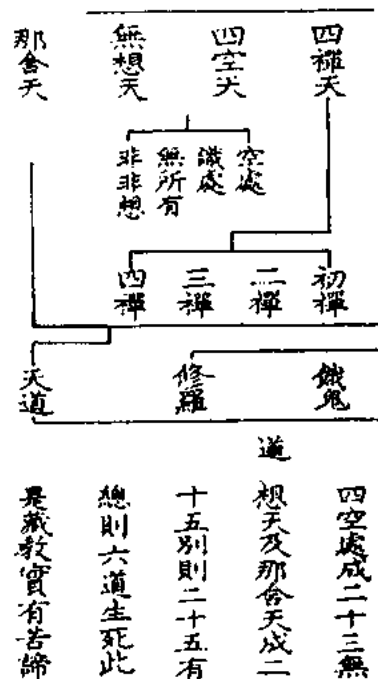 四禪天
四空天
無想天
那含天
空處
識處
無所有
非非想
初禪
二禪
三禪
四禪
餓鬼
修羅
天道
道
四空處成二十三無
想天及那含天成二
十五別則二十五有
總則六道生死此
是藏教實有苦諦